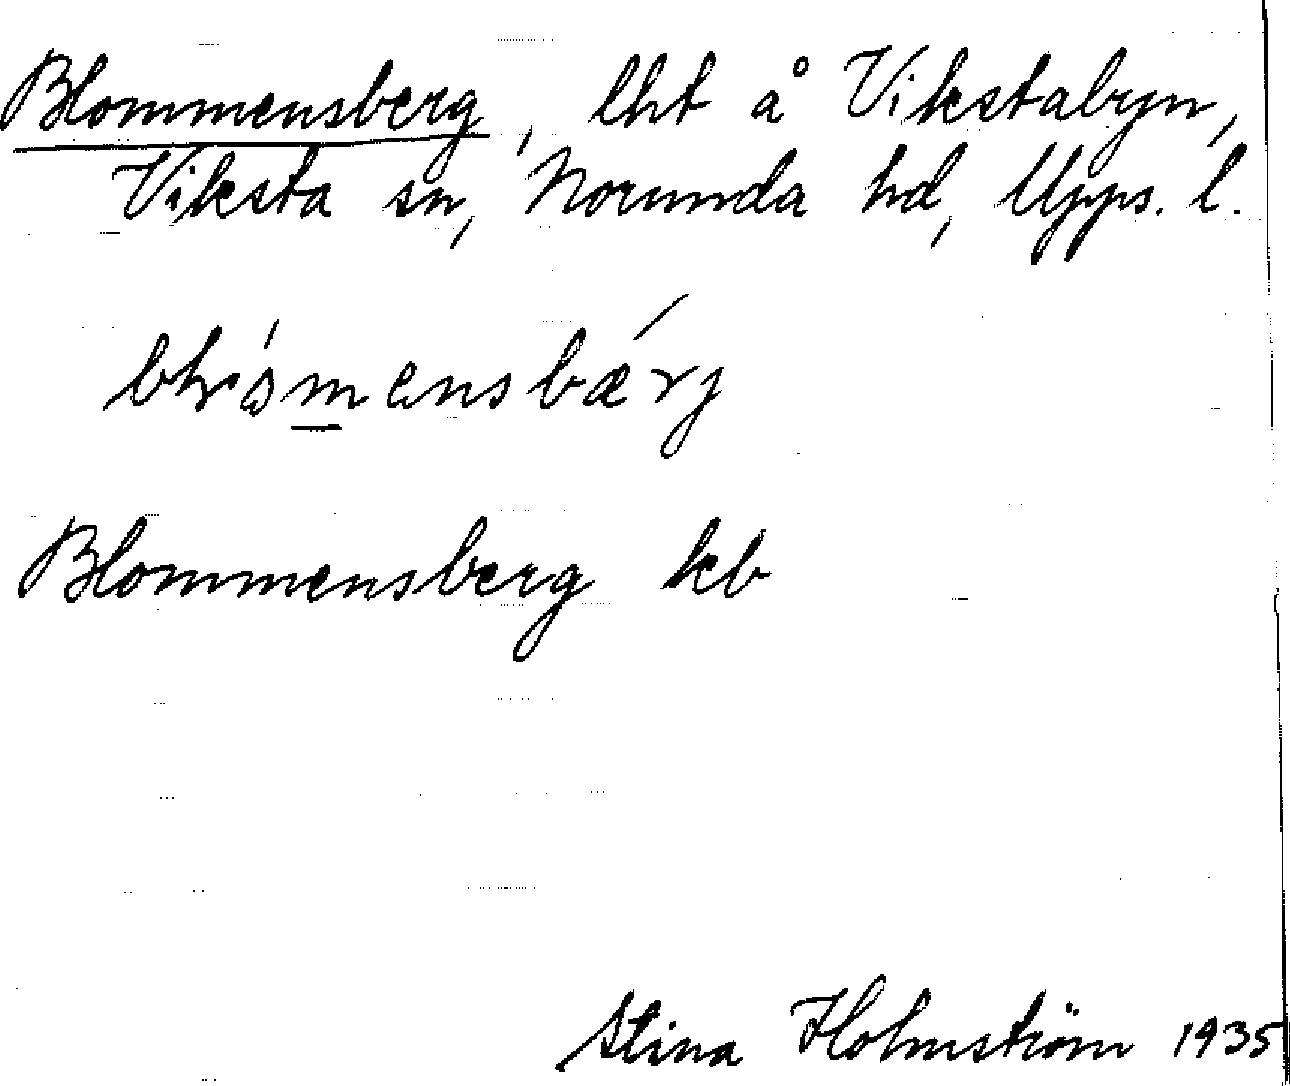 Blommensberg, lht å Vikstabyn,
Viksta sn, Norunda hd, Upps. l.
Blommensberg kb
Stina Holmström 1935